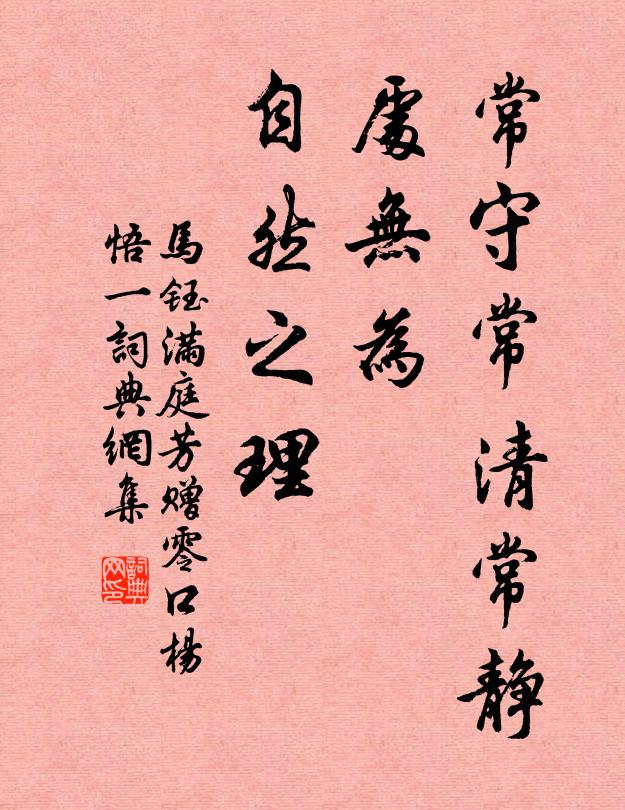 常守常清常静
處無為
自然之理
馬鈺滿庭芳贈零口楊
悟一詞典網集
詞典网印